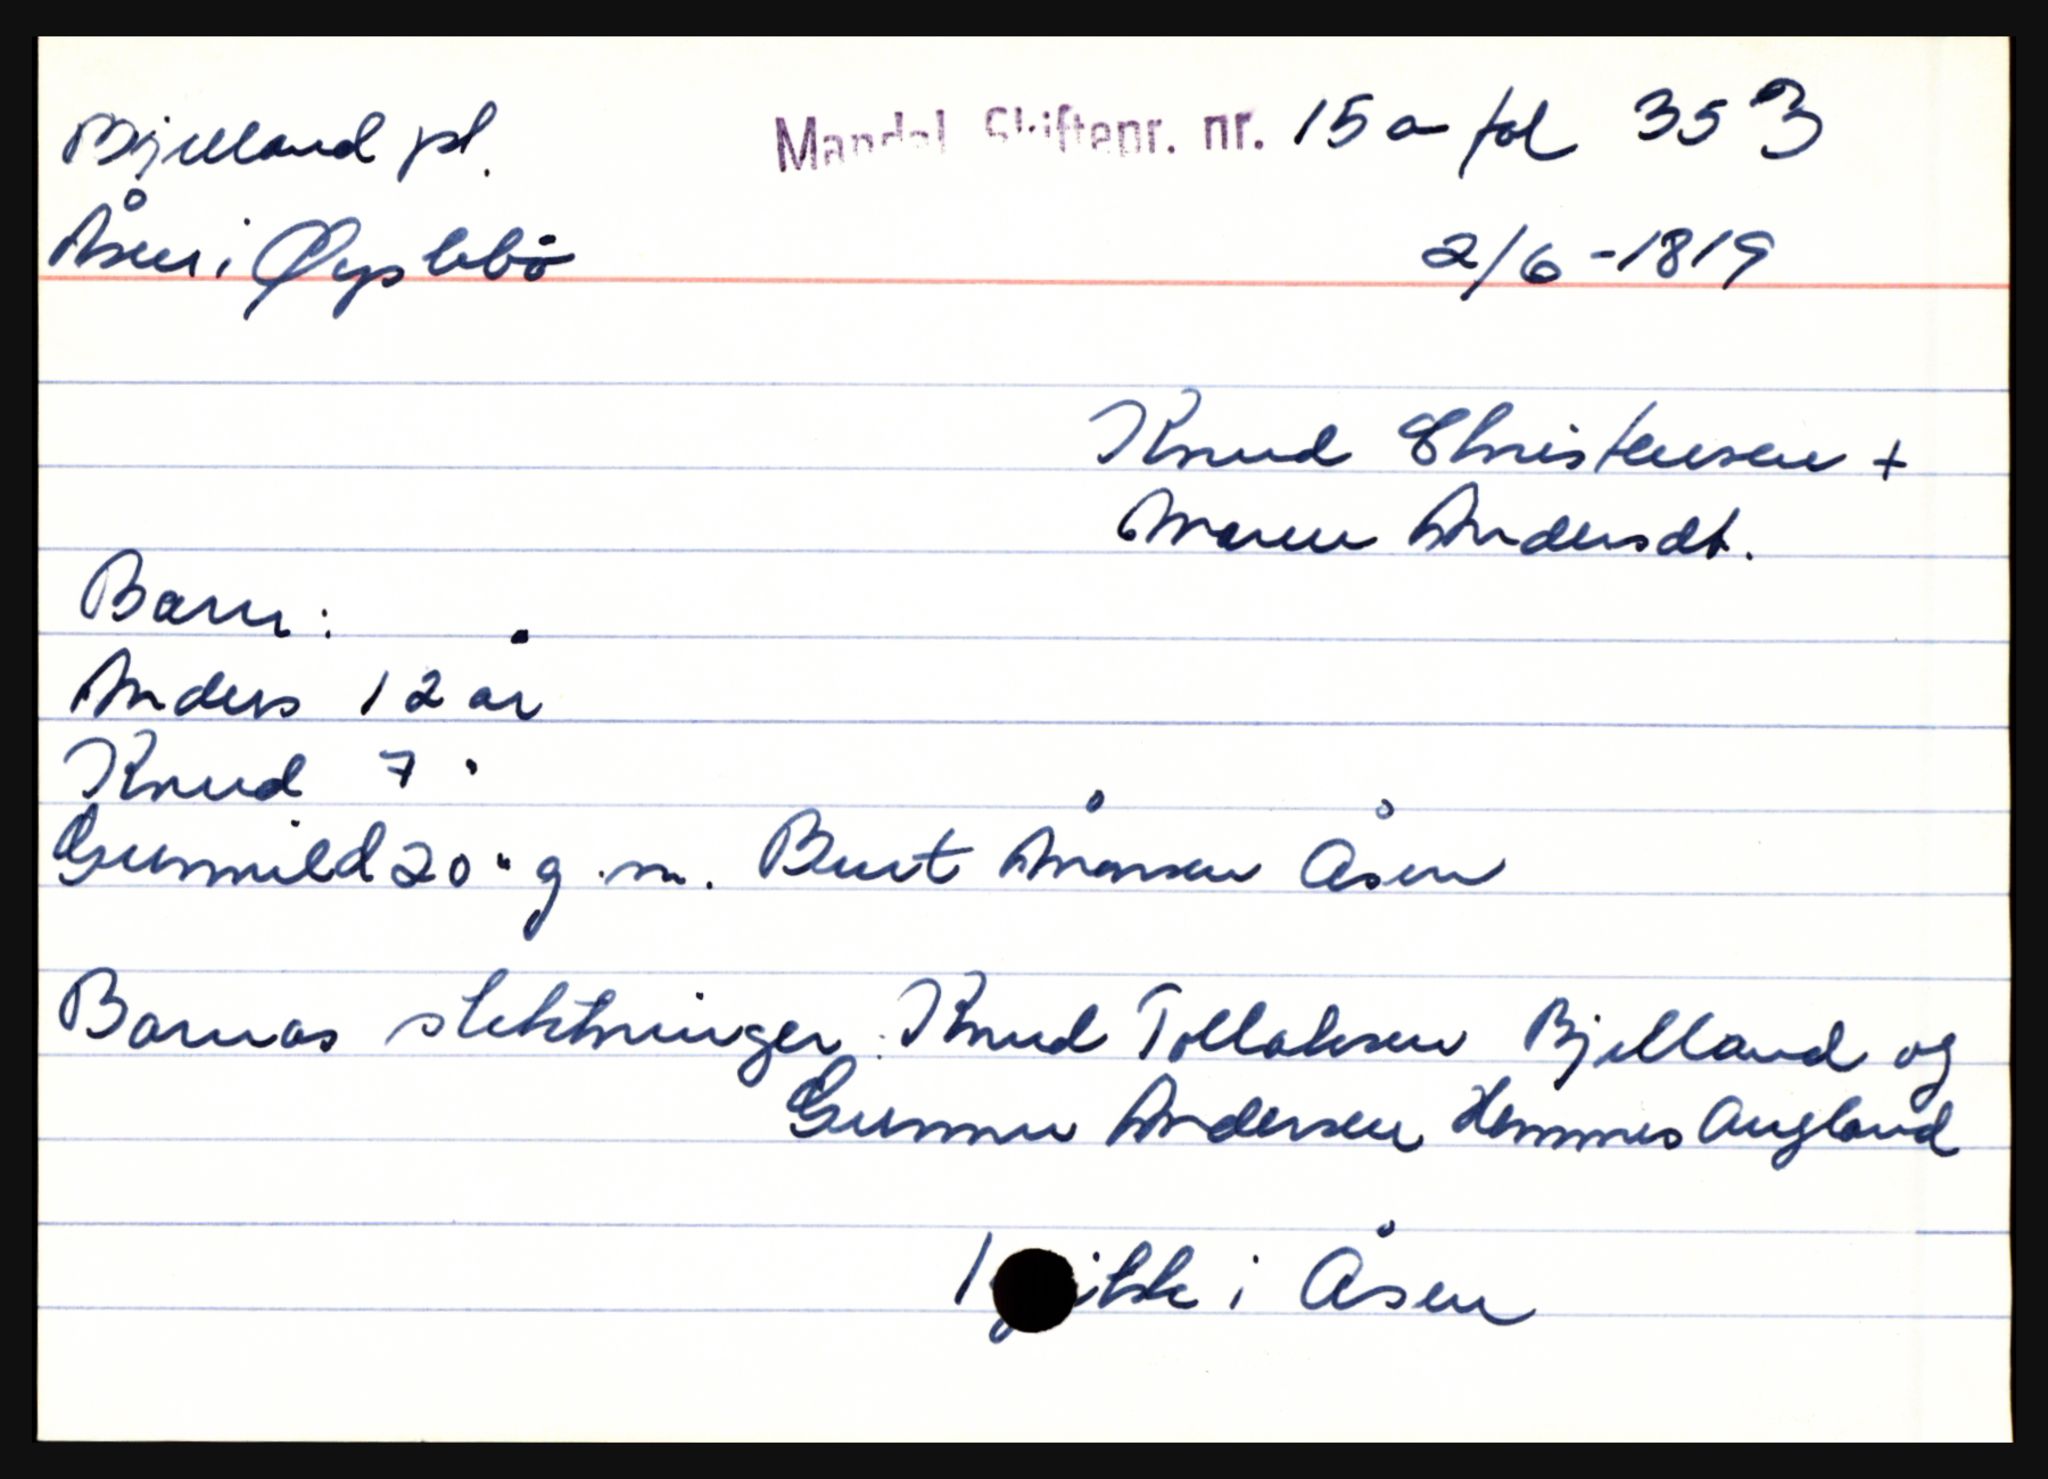 Bjelland pl. Mandal Skiftepr. nr. 15 a fol 353
Åsen i Øyslebö 2/6-1819
Knud Christensen +
Maren Andersdt.
Barn:
Anders 12 år
Knud 7 "
Gunnild 20 " g. m. Berit Åmonsen Åsen
Barnas slektninger: Knud Tollaksen Bjelland og
Gunnu Andersen Hemmes Augland
1 gikk i Åsen